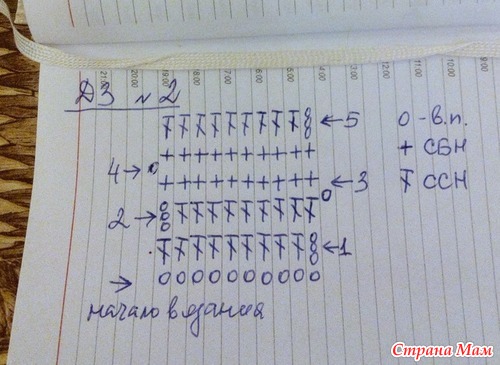 21:00 20:00 19:00 18:00 17:00 16:00 15:00 14:00 13:00 12:00 11:00 10:00 09:00
ДЗ №2
ŦŦŦŦŦŦŦŦŦ8 ←5 о - в.п.
4→ 0++++++++++ + СБН
++++++++++ ←3 Ŧ ССН
2→ 8ŦŦŦŦŦŦŦŦŦ0
.ŦŦŦŦŦŦŦŦŦ8 ←1
→ 0000000000
начало вязания
Страна Мам